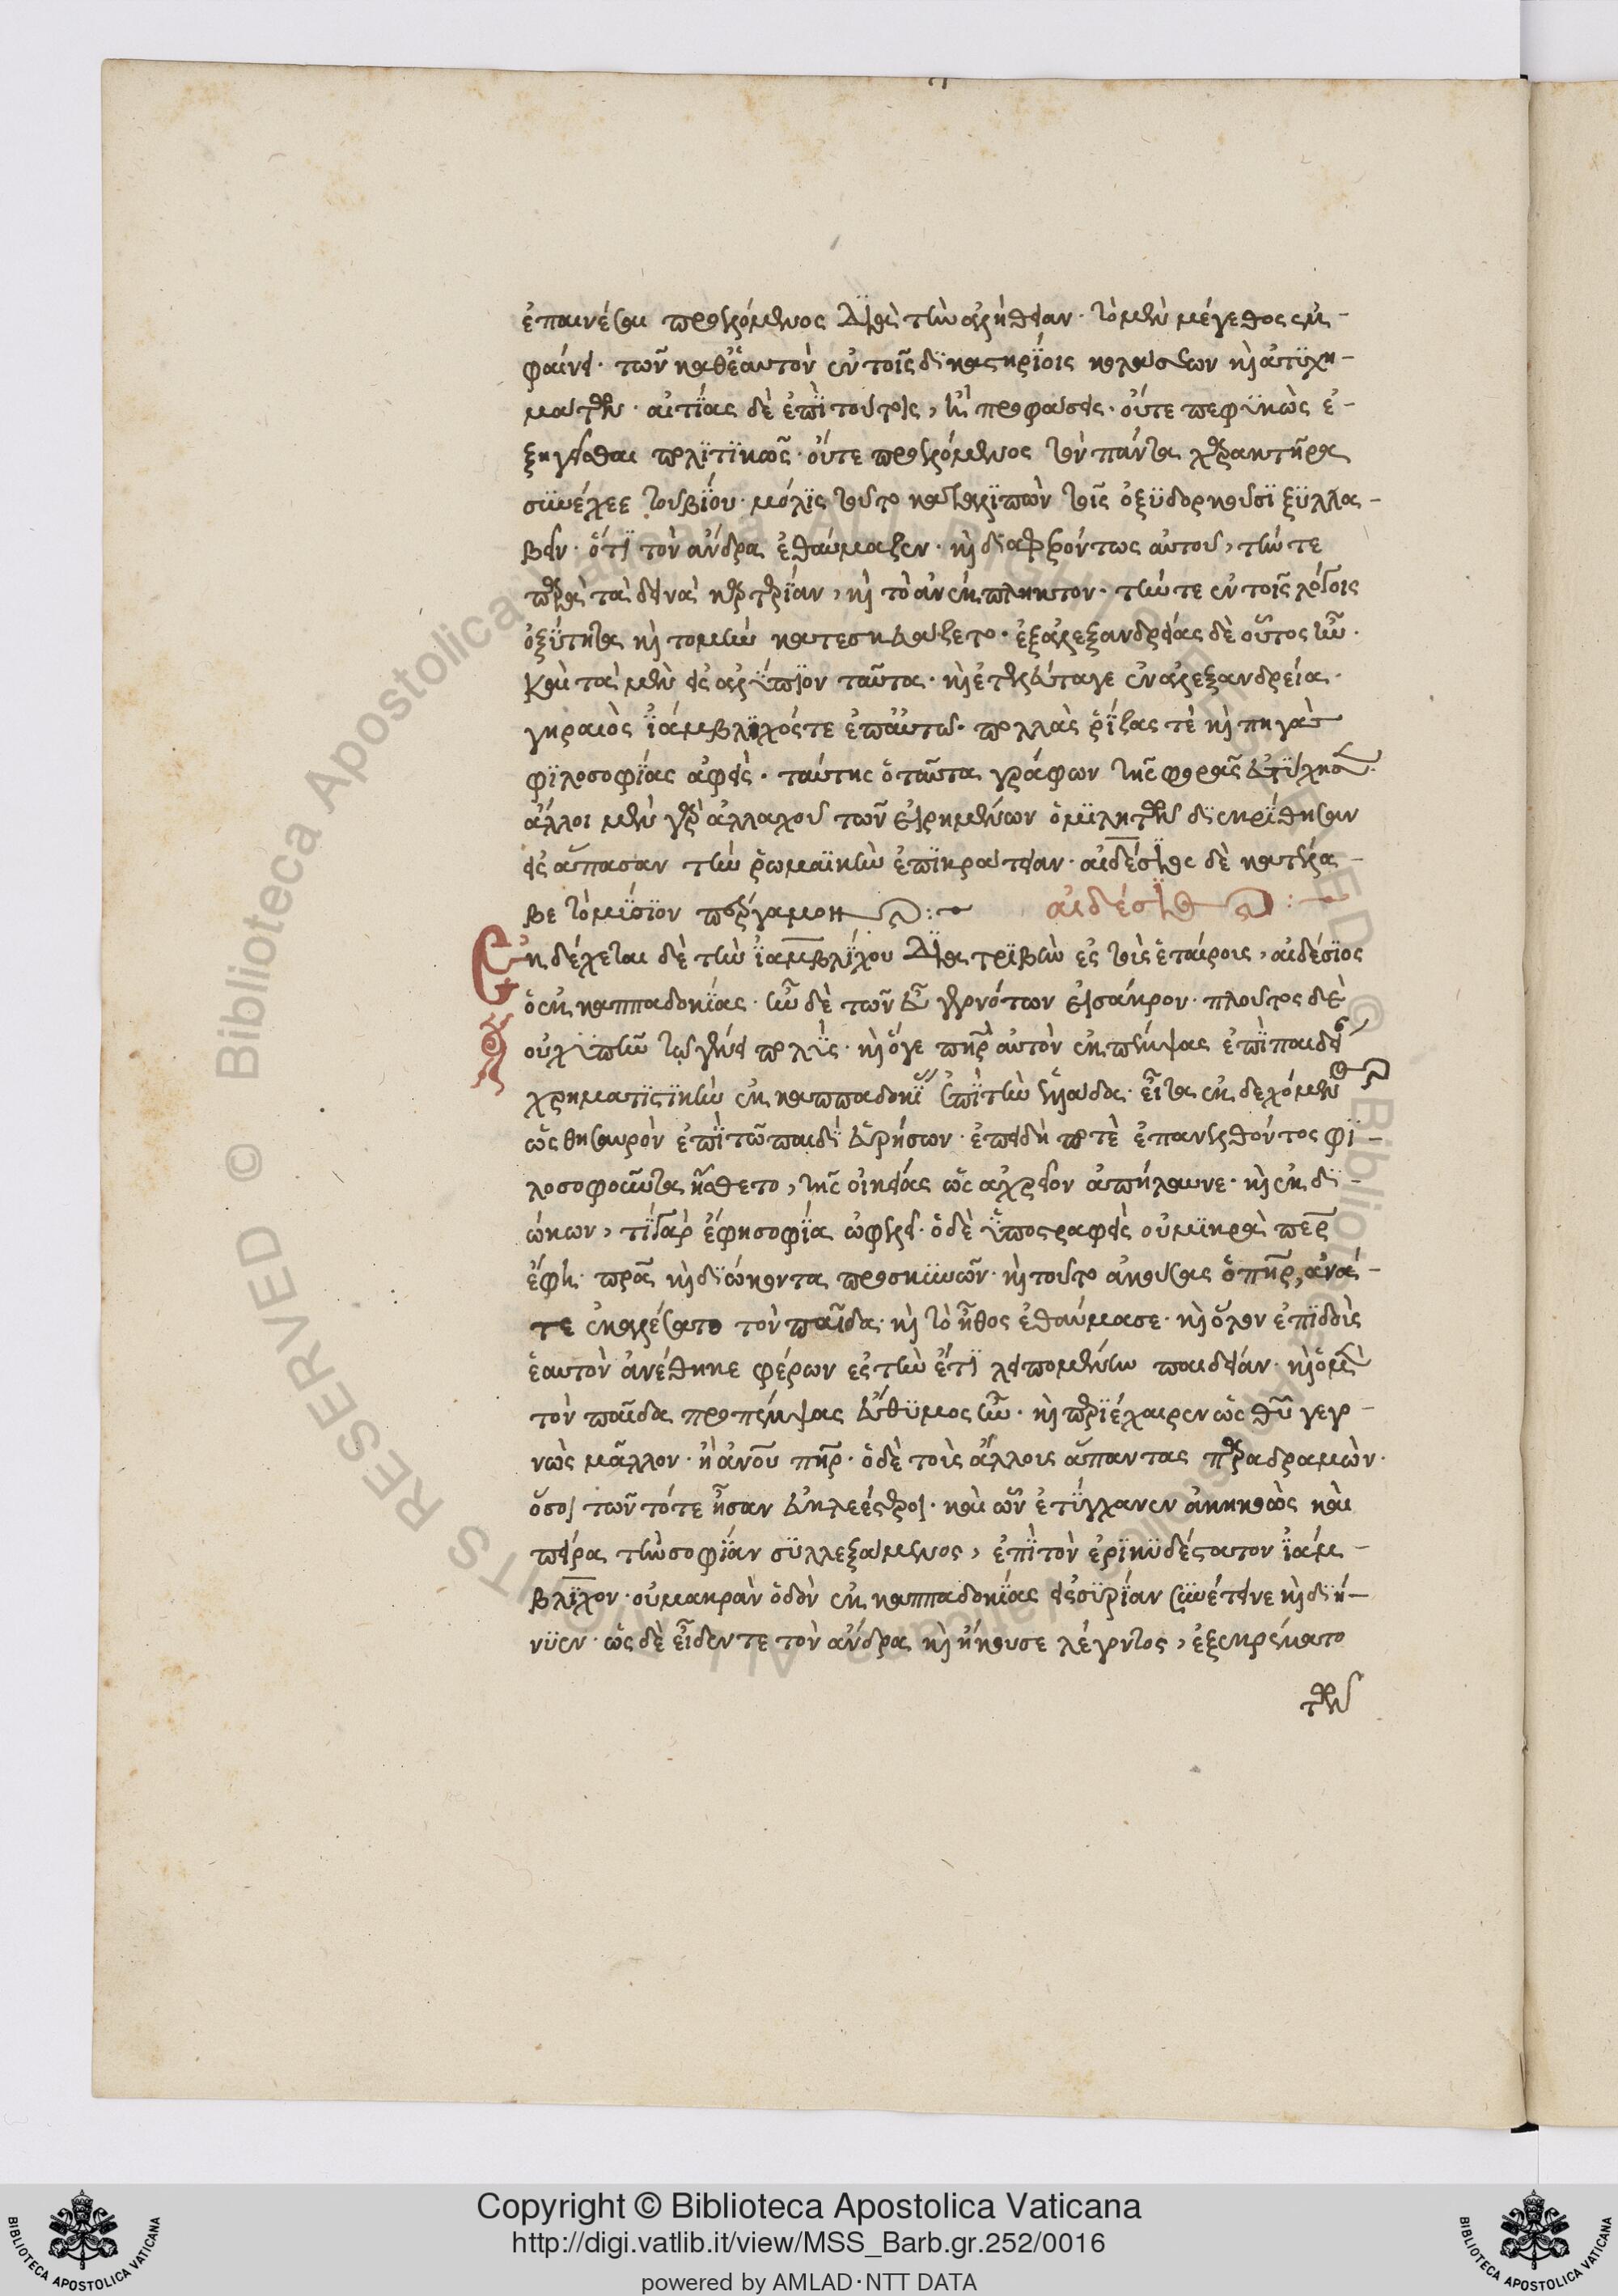 ἐπαινέσαι προελόμενος διὰ τὴν ἀλήθειαν· τὸ μὲν μέγεθος ἐμ-
φαίνει· τῶν καθ' ἑαυτὸν ἐν τοῖς δικαστηρίοις κολάσεων καὶ ἀτυχη-
μάτων· αἰτίας δὲ ἐπὶ τούτοις, ἢ προφάσεις· οὔτε πεφυκὼς ἐ-
ξηγεῖσθαι πολιτικῶς· οὔτε προελόμενος τὸν πάντα χαρακτῆρα
συνέχεε τοῦ βίου· μόλις τοῦτο καταλιπὼν τοῖς ὀξυδορκοῦσι ξυλλα-
βεῖν· ὅτι τὸν ἄνδρα ἐθαύμαζεν· καὶ διαφερόντως αὐτοῦ, τήν τε
παρὰ τὰ δεινὰ καρτερίαν, καὶ τὸ ἀνέκπληκτον· τήν τε ἐν τοῖς λόγοις
ὀξύτητα καὶ τομὴν κατεσκευάζετο· ἐξ ἀλεξανδρείας δὲ οὗτος ἦν·
καὶ τὰ μὲν εἰς ἀλύπιον ταῦτα· καὶ ἐτελεύτα γε ἐν ἀλεξανδρεία·
γηραιὸς ἰάμβλιχός τε ἐπ' αὐτῶ· πολλὰς ῥίζας τὲ καὶ πηγὰς
φιλοσοφίας ἀφεὶς· ταύτης ὁ ταῦτα γράφων τῆς φορᾶς εὐτύχησεν·
ἄλλοι μὲν γὰρ ἀλλαχοῦ τῶν εἰρημένων ὁμιλητῶν διεκρίθησαν
εἰς ἅπασαν τὴν ῥωμαϊκὴν ἐπικράτειαν· αἰδέσιος δὲ κατέλα-
βε τὸ μύσιον πέργαμον :- αἰδέσιος :-
Ἐκδέχεται δὲ τὴν ἰαμβλίχου διατριβὴν ἐς τοὺς ἑταίρους, αἰδέσιος
ὁ ἐκ καππαδοκίας· ἦν δὲ τῶν εὖ γεγονότων εἰς ἄκρον· πλοῦτος δὲ
οὐχ ὑπῆν τῶ γένει πολὺς· καὶ ὅγε πατὴρ αὐτὸν ἐκπέμψας ἐπὶ παιδεί
χρηματιστικὴν ἐκ καππαδοκί ἐπὶ τὴν ἑλλάδα· εἶτα ἐκδεχόμενος
ὡς θησαυρὸν ἐπὶ τῶ παιδὶ εὑρήσων· ἐπειδή ποτὲ ἐπανελθόντος φι-
λοσοφοῦντα ἤσθετο, τῆς οἰκείας ὡς ἀχρεῖον ἀπήλαυνε· καὶ ἐκδι-
ώκων, τί γὰρ ἔφη σοφία ὠφελεῖ· ὁ δὲ ὑποστραφεὶς οὐ μικρὰ πάτερ
ἔφη· πρᾶ καὶ διώκοντα προσκυνῶν· καὶ τοῦτο ἀκούσας ὁ πατὴρ, ἀνά-
τε ἐκαλέσατο τὸν παῖδα· καὶ τὸ ἦθος ἐθαύμασε· καὶ ὅλον ἐπιδοὺς
ἑαυτὸν ἀνέθηκε φέρων ἐς τὴν ἔτι λειπομένην παιδείαν· καὶ ὁ μὲν
τὸν παῖδα προπέμψας εὔθυμος ἦν· καὶ περιέχαιρεν ὡς θεοῦ γεγο-
νὼς μᾶλλον· ἢ ἀνοῦ πατήρ· ὁ δὲ τοὺς ἄλλους ἅπαντας παραδραμὼν·
ὅσοι τῶν τότε ἦσαν εὐκλεέστεροι· καὶ ὧν ἐτύγχανεν ἀκηκοὼς καὶ
πείρα τὴν σοφίαν συλλεξάμενος, ἐπὶ τὸν ἐρικυδέστατον ἰάμ-
βλιχον· οὐ μακρὰν ὁδὸν ἐκ καππαδοκίας εἰς συρίαν συνέτεινε καὶ διή-
νυεν· ὡς δὲ εἶδεν τε τὸν ἄνδρα καὶ ἤκουσε λέγοντος, ἐξεκρέματο
τῶν
Copyright © Biblioteca Apostolica Vaticana
http://digi.vatlib.it/view/MSS_Barb.gr.252/0016
powered by AMLAD·NTT DATA